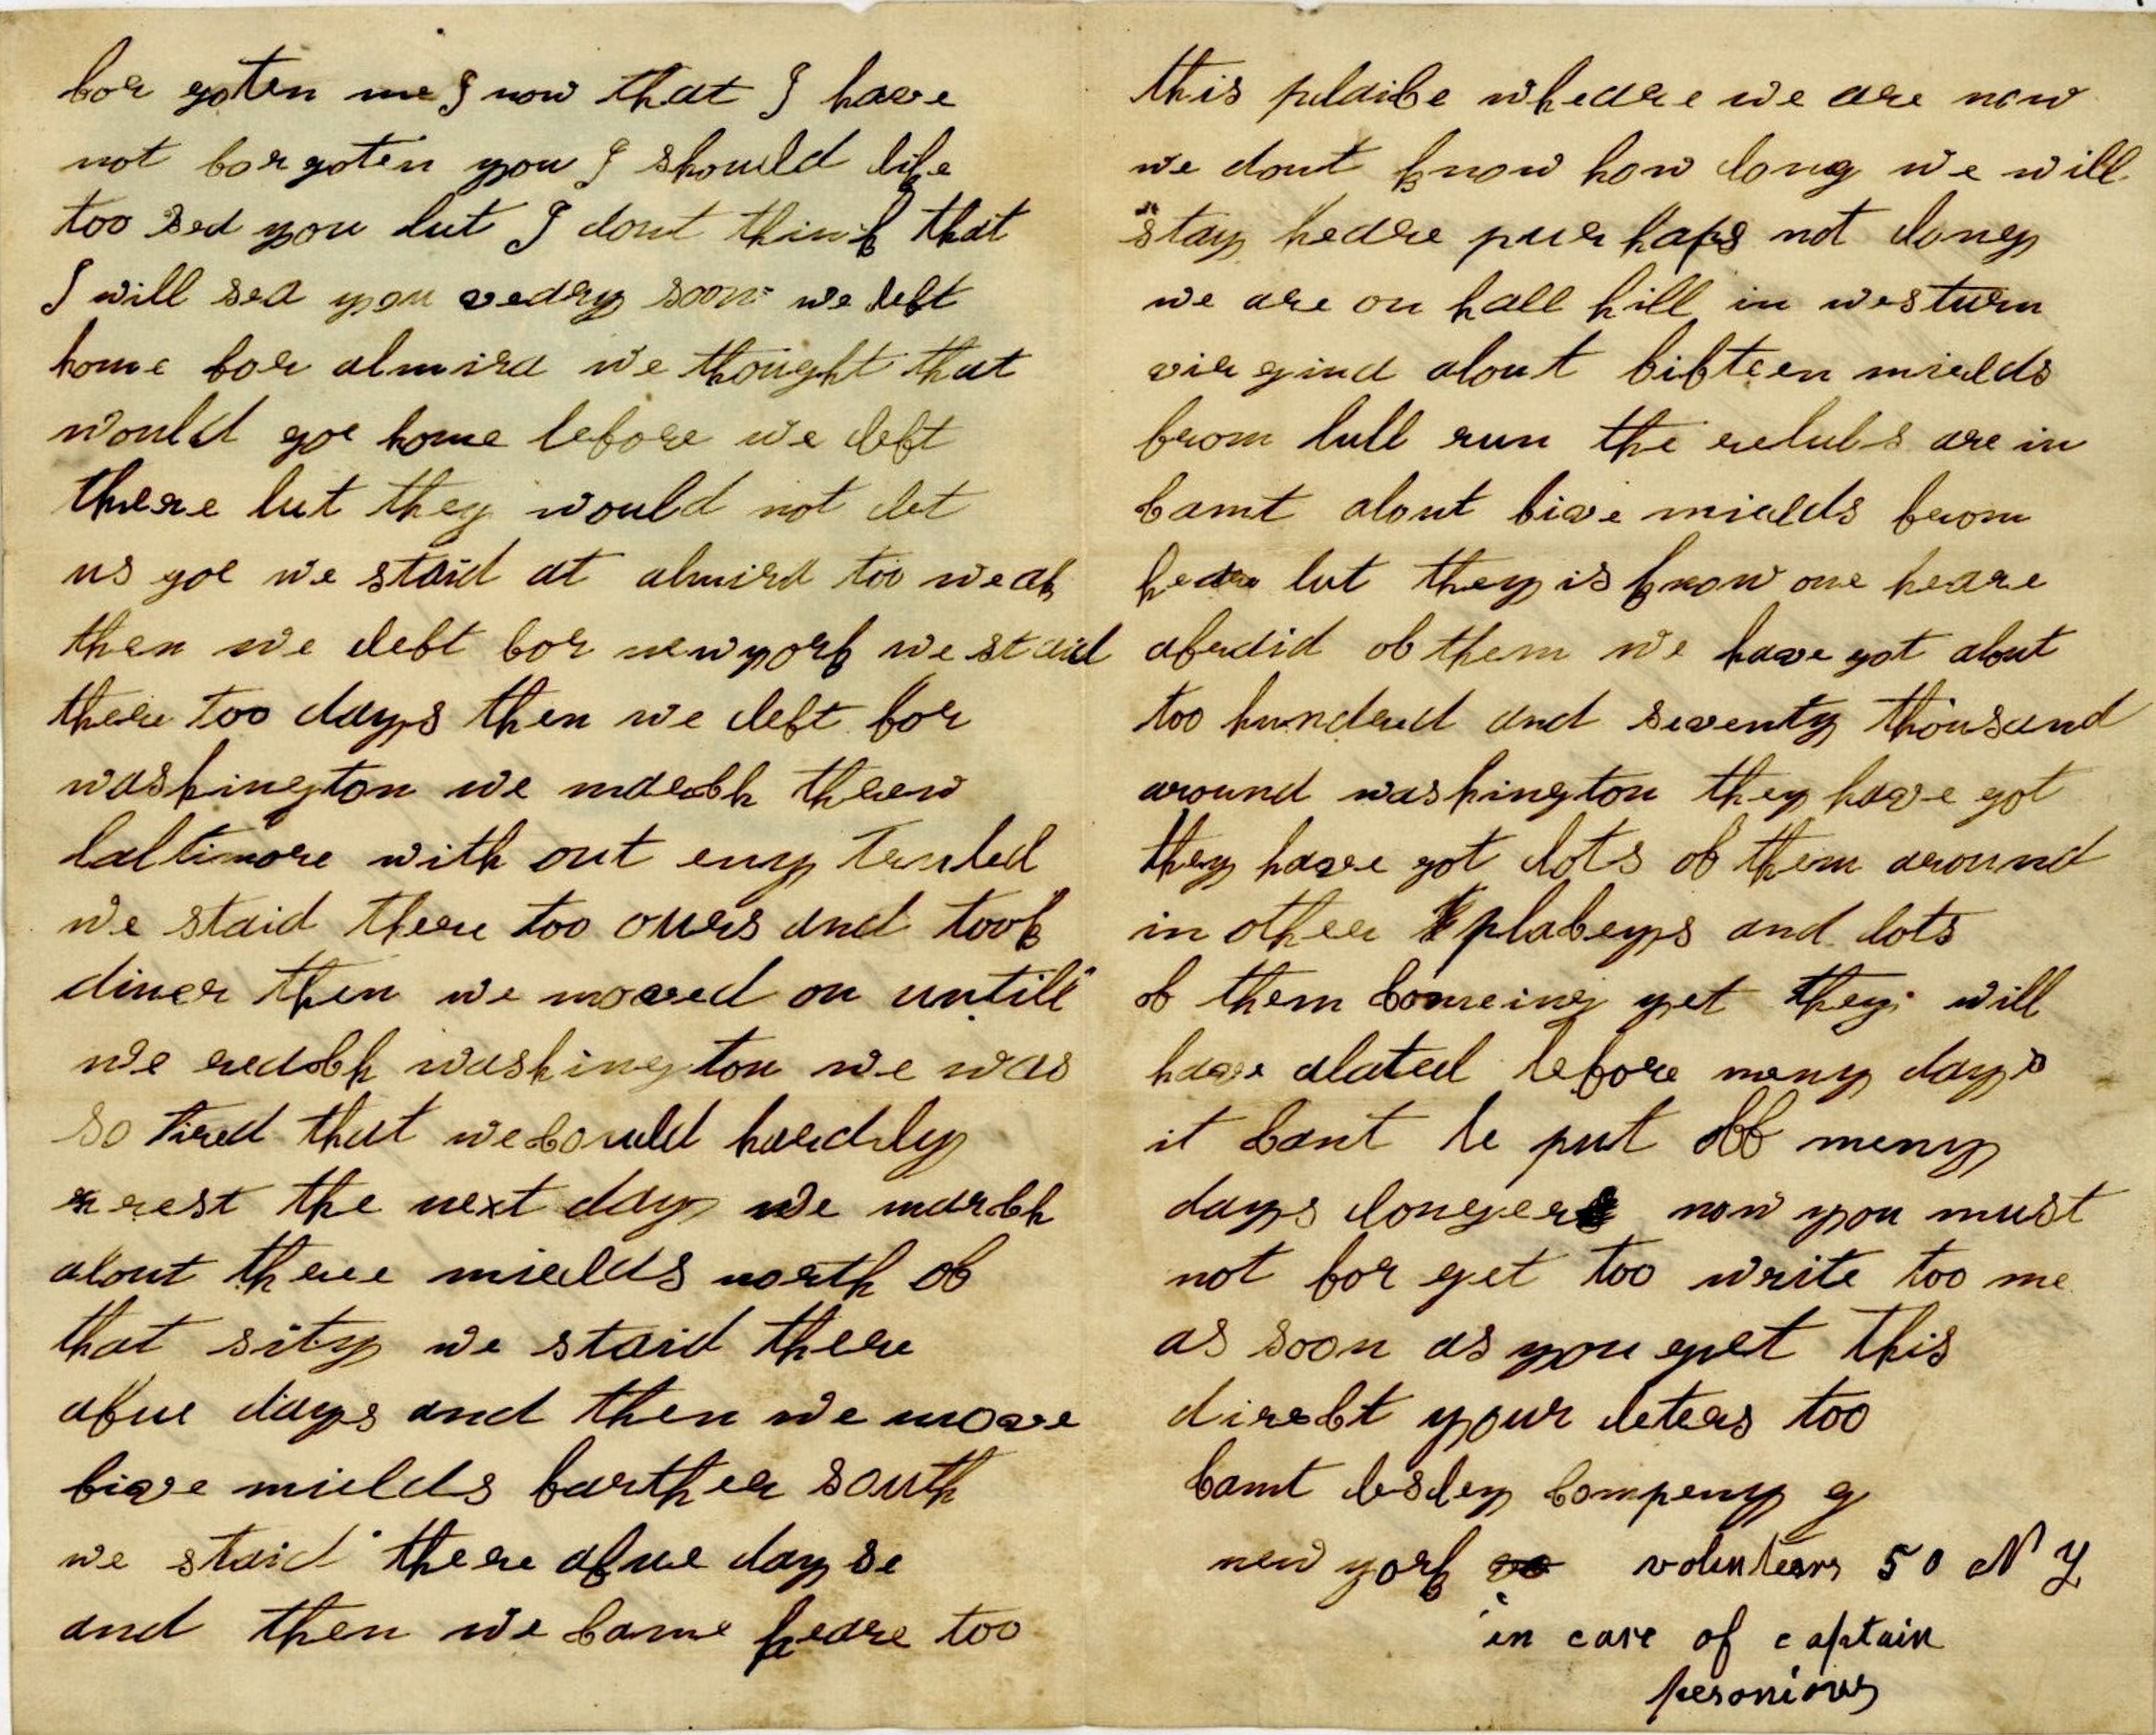 for goten me I now that I have
not forgoten you I should like
too sea you but I dont think that
I will sea you veary soon we left
home for almira we thought that
would goe home before we left
there but they would not let
us goe we staid at almira too weak
then we left for newyork we staid
there too days then we left for
washington we march threw
baltimore with out eny trubel
we staid there too ours and took
diner then we moved on untill
we reaoch washington we was
so tired that we could hardly
rest the next day we march
about three mields north of
that sity we staid there
afue days and then we move
five mields farther south
we staid there afue day se
and then we came heare too
this plaice wheare we are now
we dont know how long we will
stay heare purhaps not long
we are on hall hill in westurn
virgina about fifteen mields
from bull run the rebubs are in
camt about five mields from
heare but they is know one heare
afraid of them we have got about
too hundred and seventy thousand
around washington they have got
they have got lots of them around
in other placeys and lots
of them comeing yet they will
have abatel before meny days
it cant be put off meny
days longer now you must
not for get too write too me
as soon as you get this
direct your leters too
camt lesley compeny g
new york volunteers 50 N Y
in care of captain